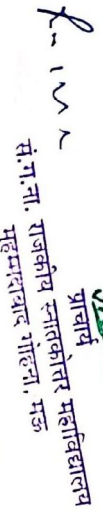 प्राचार्य
सं.ग.ना. राजकीय स्नातकोत्तर महाविद्यालय
मुहम्मदाबाद गोहना, मऊ